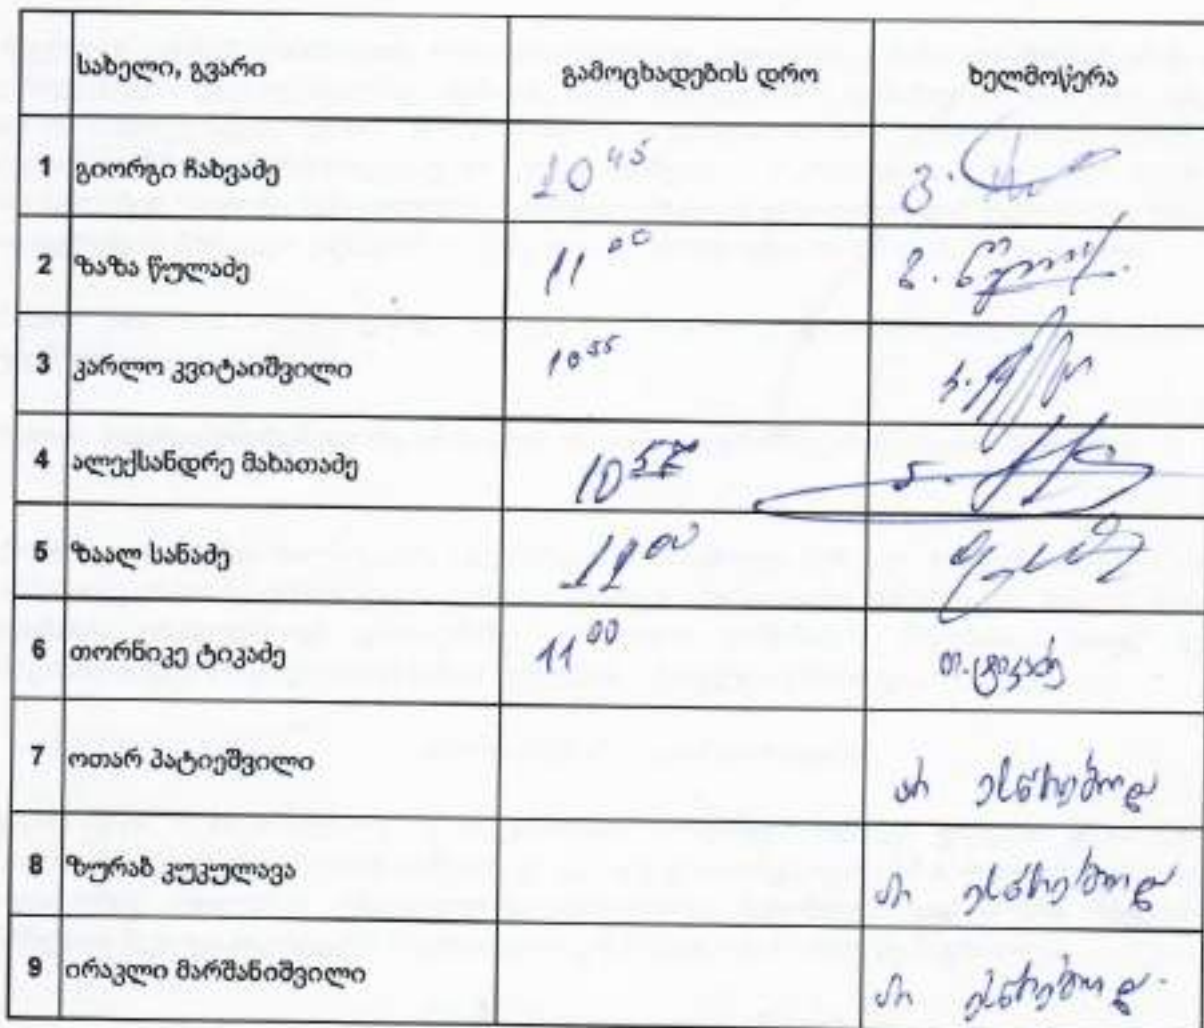 სახელი, გვარი გამოცხადების დრო ხელმოწერა
1 გიორგი ჩახვაძე 10 45 გ.
2 ზაზა წულაძე 11 00 ზ. წულაძე
3 კარლო კვიტაიშვილი 10 55 კ.
4 ალექსანდრე მახათაძე 10 57 ა.
5 ზაალ სანაძე 11 00
6 თორნიკე ტიკაძე 11 00 თ. ტიკაძე
7 ოთარ პატიეშვილი არ ესწრებოდა
8 ზურაბ კუკულავა არ ესწრებოდა
9 ირაკლი მარშანიშვილი არ ესწრებოდა